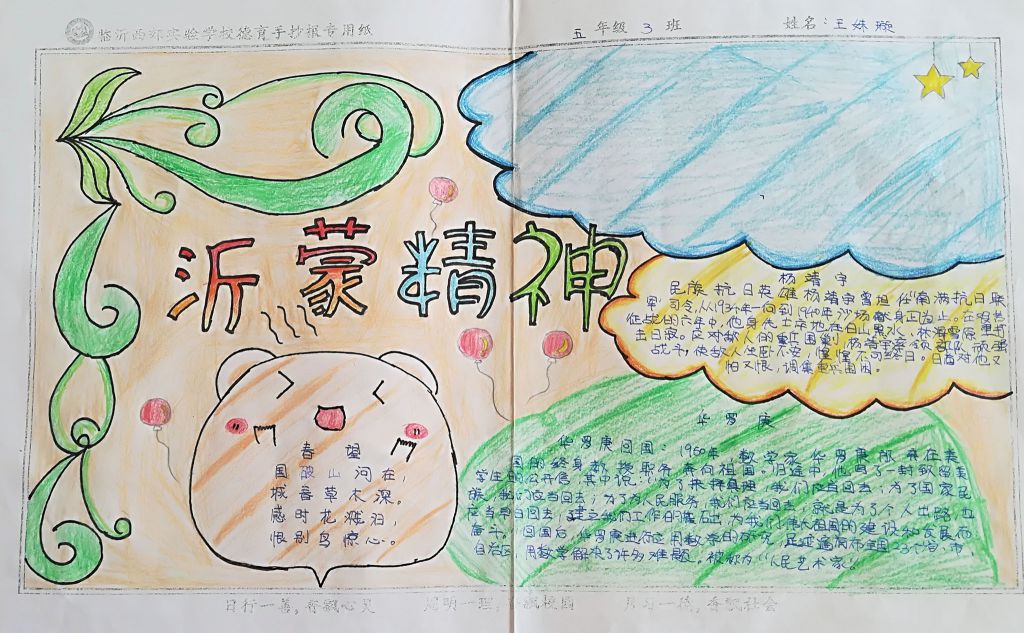 临沂西郊实验学校德育手抄报专用纸
五 年级 3 班 姓名：王姝璇
沂蒙精神
杨靖宇
民族抗日英雄杨靖宇曾担任"南满抗日联
军"司令,从1934年一向到1940年沙场献身正为止。在艰苦
征战的六年中,他身先士卒地在白山黑水、林海雪原里打
击日寇。应对敌人的重兵围剿,杨靖宇率领部队顽强
战斗,使敌人坐卧不安,惶惶不可终日。日酋对他又
怕又恨,调集重兵围困。
春望
国破山河在，
城春草木深。
感时花溅泪，
恨别鸟惊心。
华罗庚
华罗庚回国：1950年，数学家华罗庚放弃在美
国的终身教授职务，奔向祖国。归途中,他写了一封致留美
学生的公开信,其中说:"为了抉择真理,我们应当回去;为了国家民
族,我们应当回去;为了为人民服务,我们应当回去;就是为了个人出路,也
应当早日回去,建立我们工作的基石,为我们伟大祖国的建设和发展而
奋斗。"回国后,华罗庚进行应用数学的研究,足迹遍布全国23个省、市、
自治区,用数学解决了许多难题。被称为"人民艺术家"
日行一善，香飘心灵 周明一理，香飘校园 月习一德，香飘社会